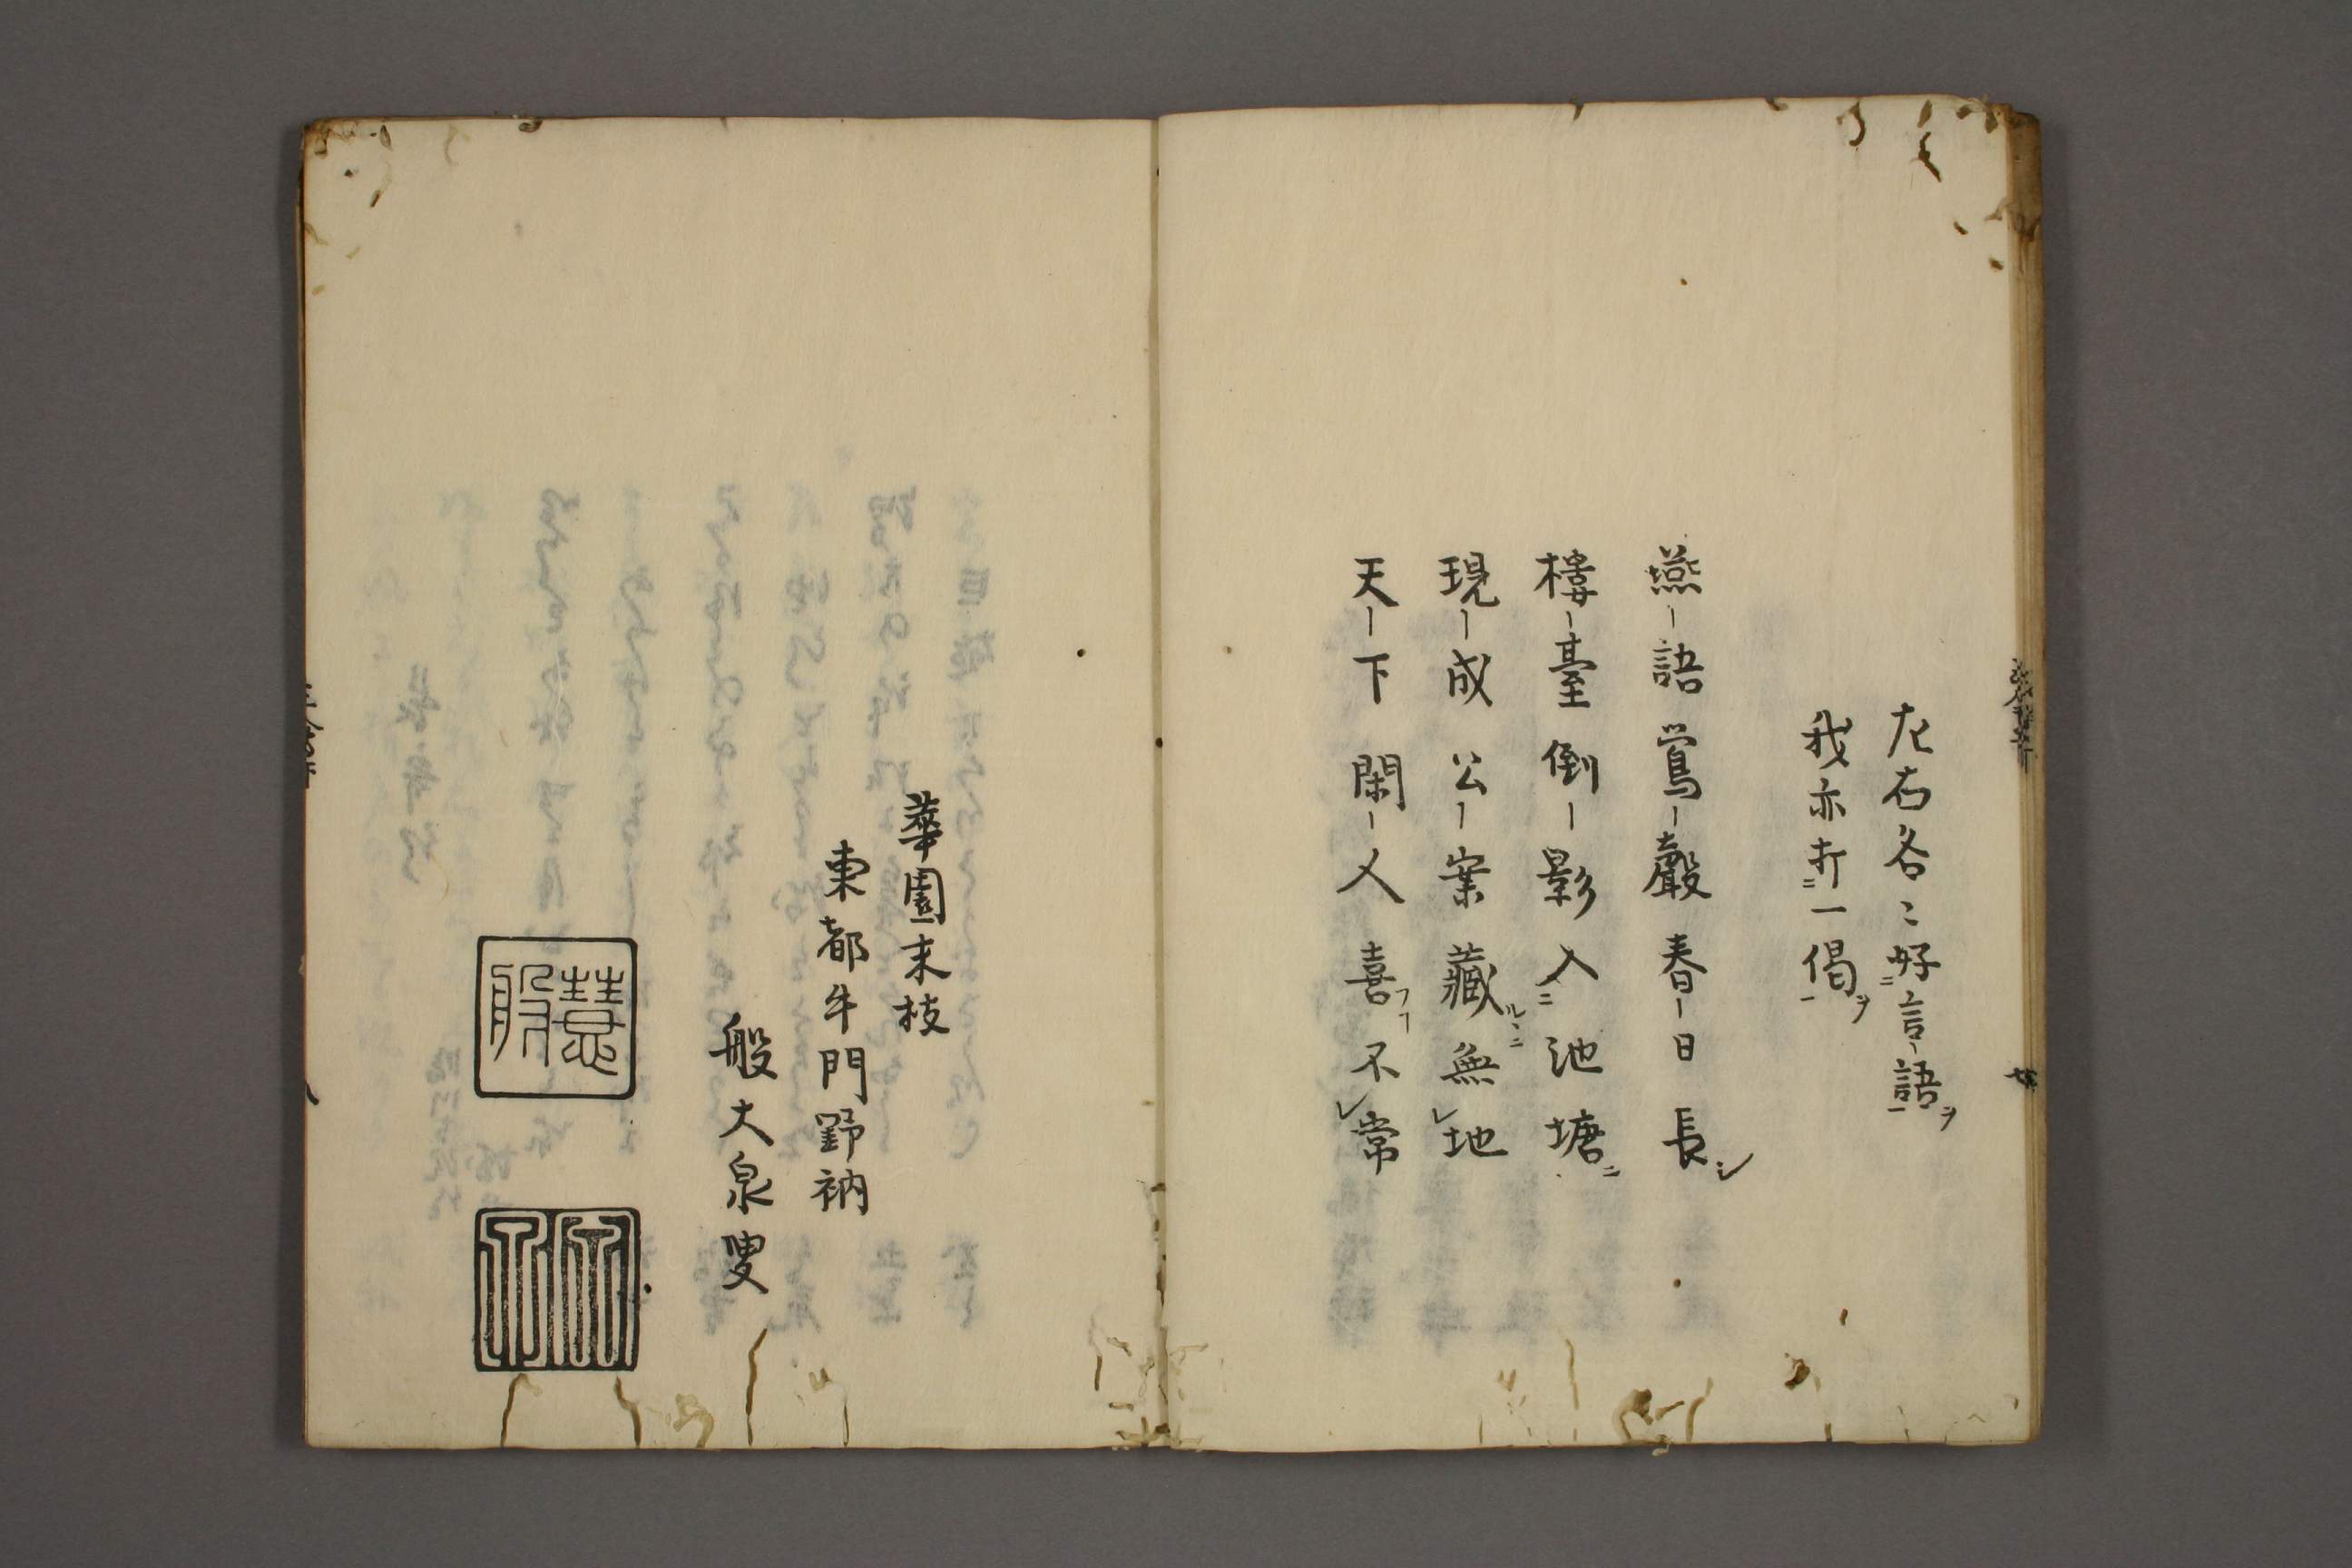 左右各〻好言語ヲ
我亦打一偈ヲ
燕語鶯聲春日長シ
樓臺倒影入池塘ニ
現成公案藏ルニ無地
天下閑人喜フ不常
華園末枝
東都牛門野衲
般大泉叟
慧般